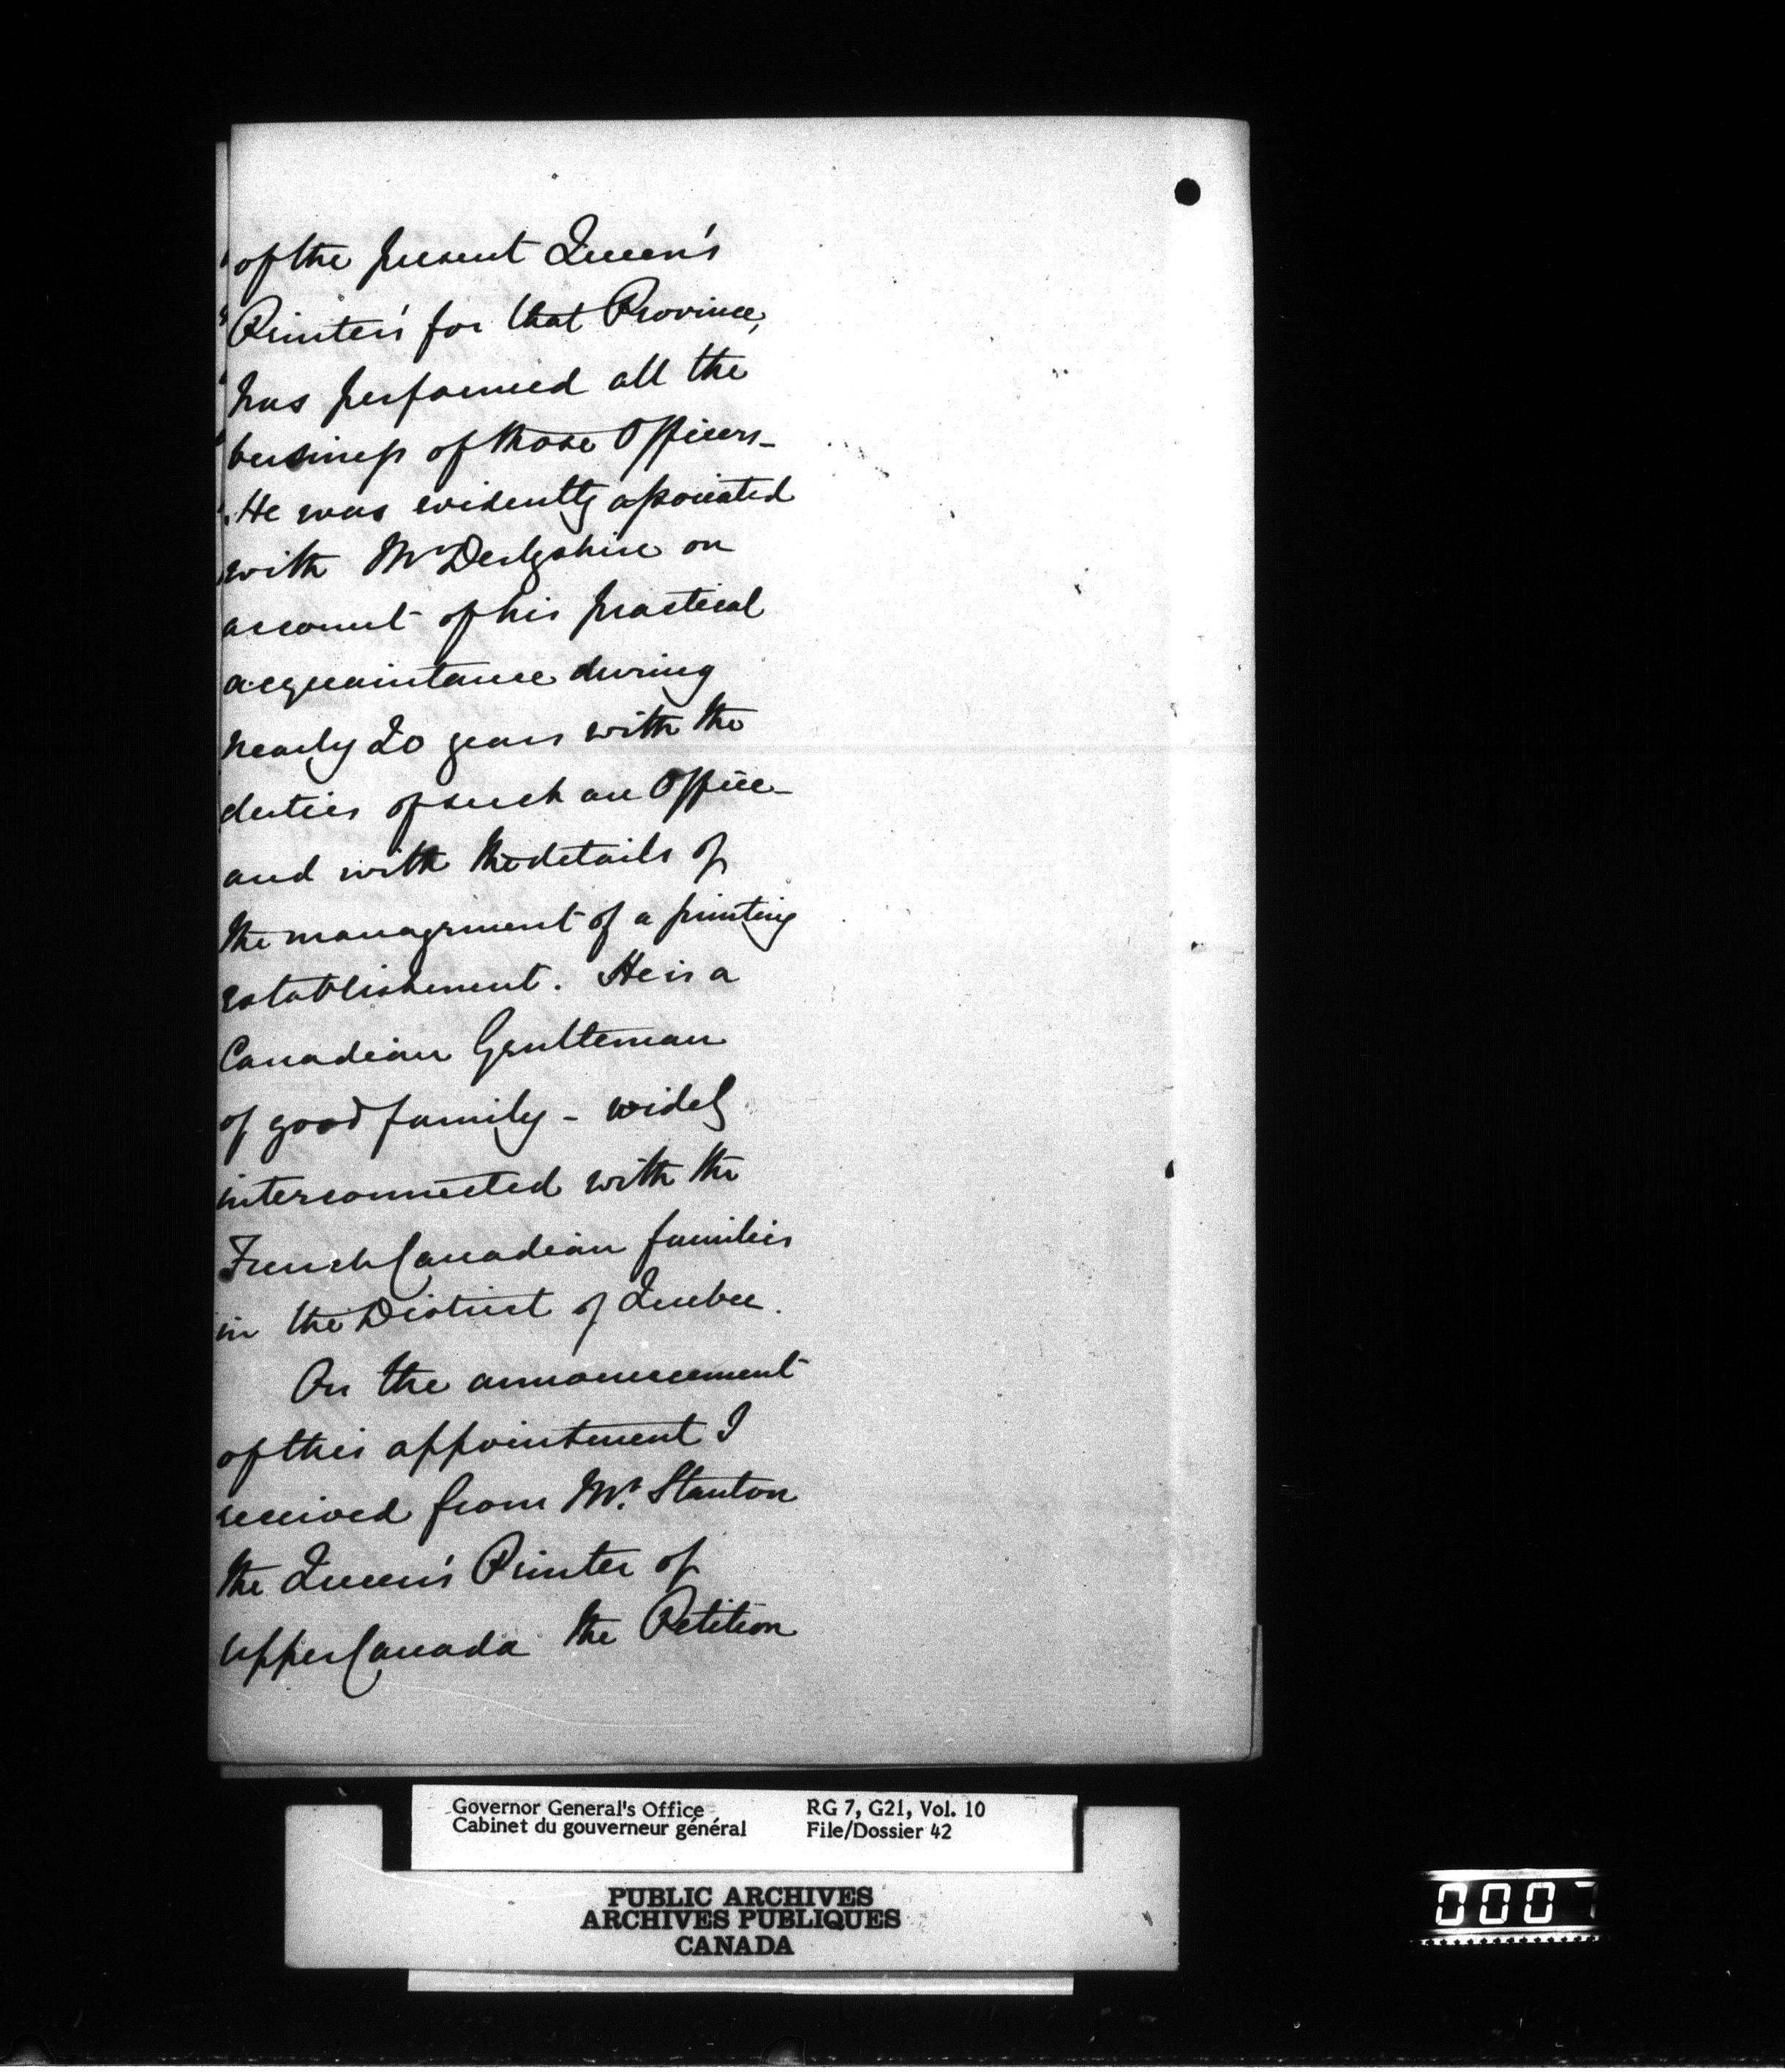 of the present Queen's
Printer's for that Province,
has performed all the
business of those Officers_
He was evidently associated
with Mr Derbyshire on
account of his practical
acquaintance during
nearly 20 years with the
duties of such an Office_
and with the details of
the management of a printing
establishment. He is a
Canadian Gentleman
of good family - widely
interconnected with the
French Canadian families
in the District of Quebec.
On the announcement
of this appointment I
received from Mr. Stanton
the Queen's Printer of
Upper Canada the Petition
Governor General's Office RG 7, G21, Vol. 10
Cabinet du gouverneur général File/Dossier 42
PUBLIC ARCHIVES
ARCHIVES PUBLIQUES
CANADA
0007